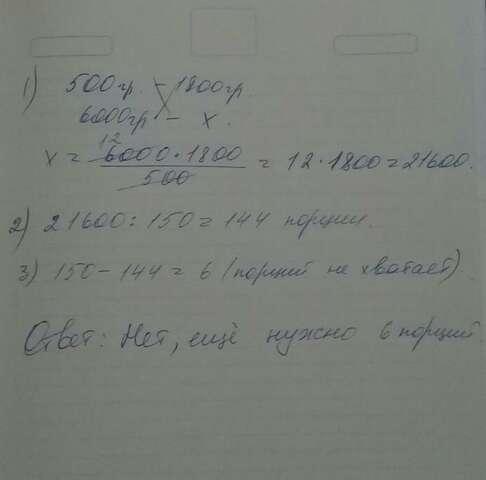 1) 500гр. – 1800гр
6000гр – х.
12
х = 6000·1800 / 500 = 12·1800=21600.
2) 21600:150=144 порции.
3) 150-144=6 (порций не хватает).
Ответ: Нет, ещё нужно 6 порций.